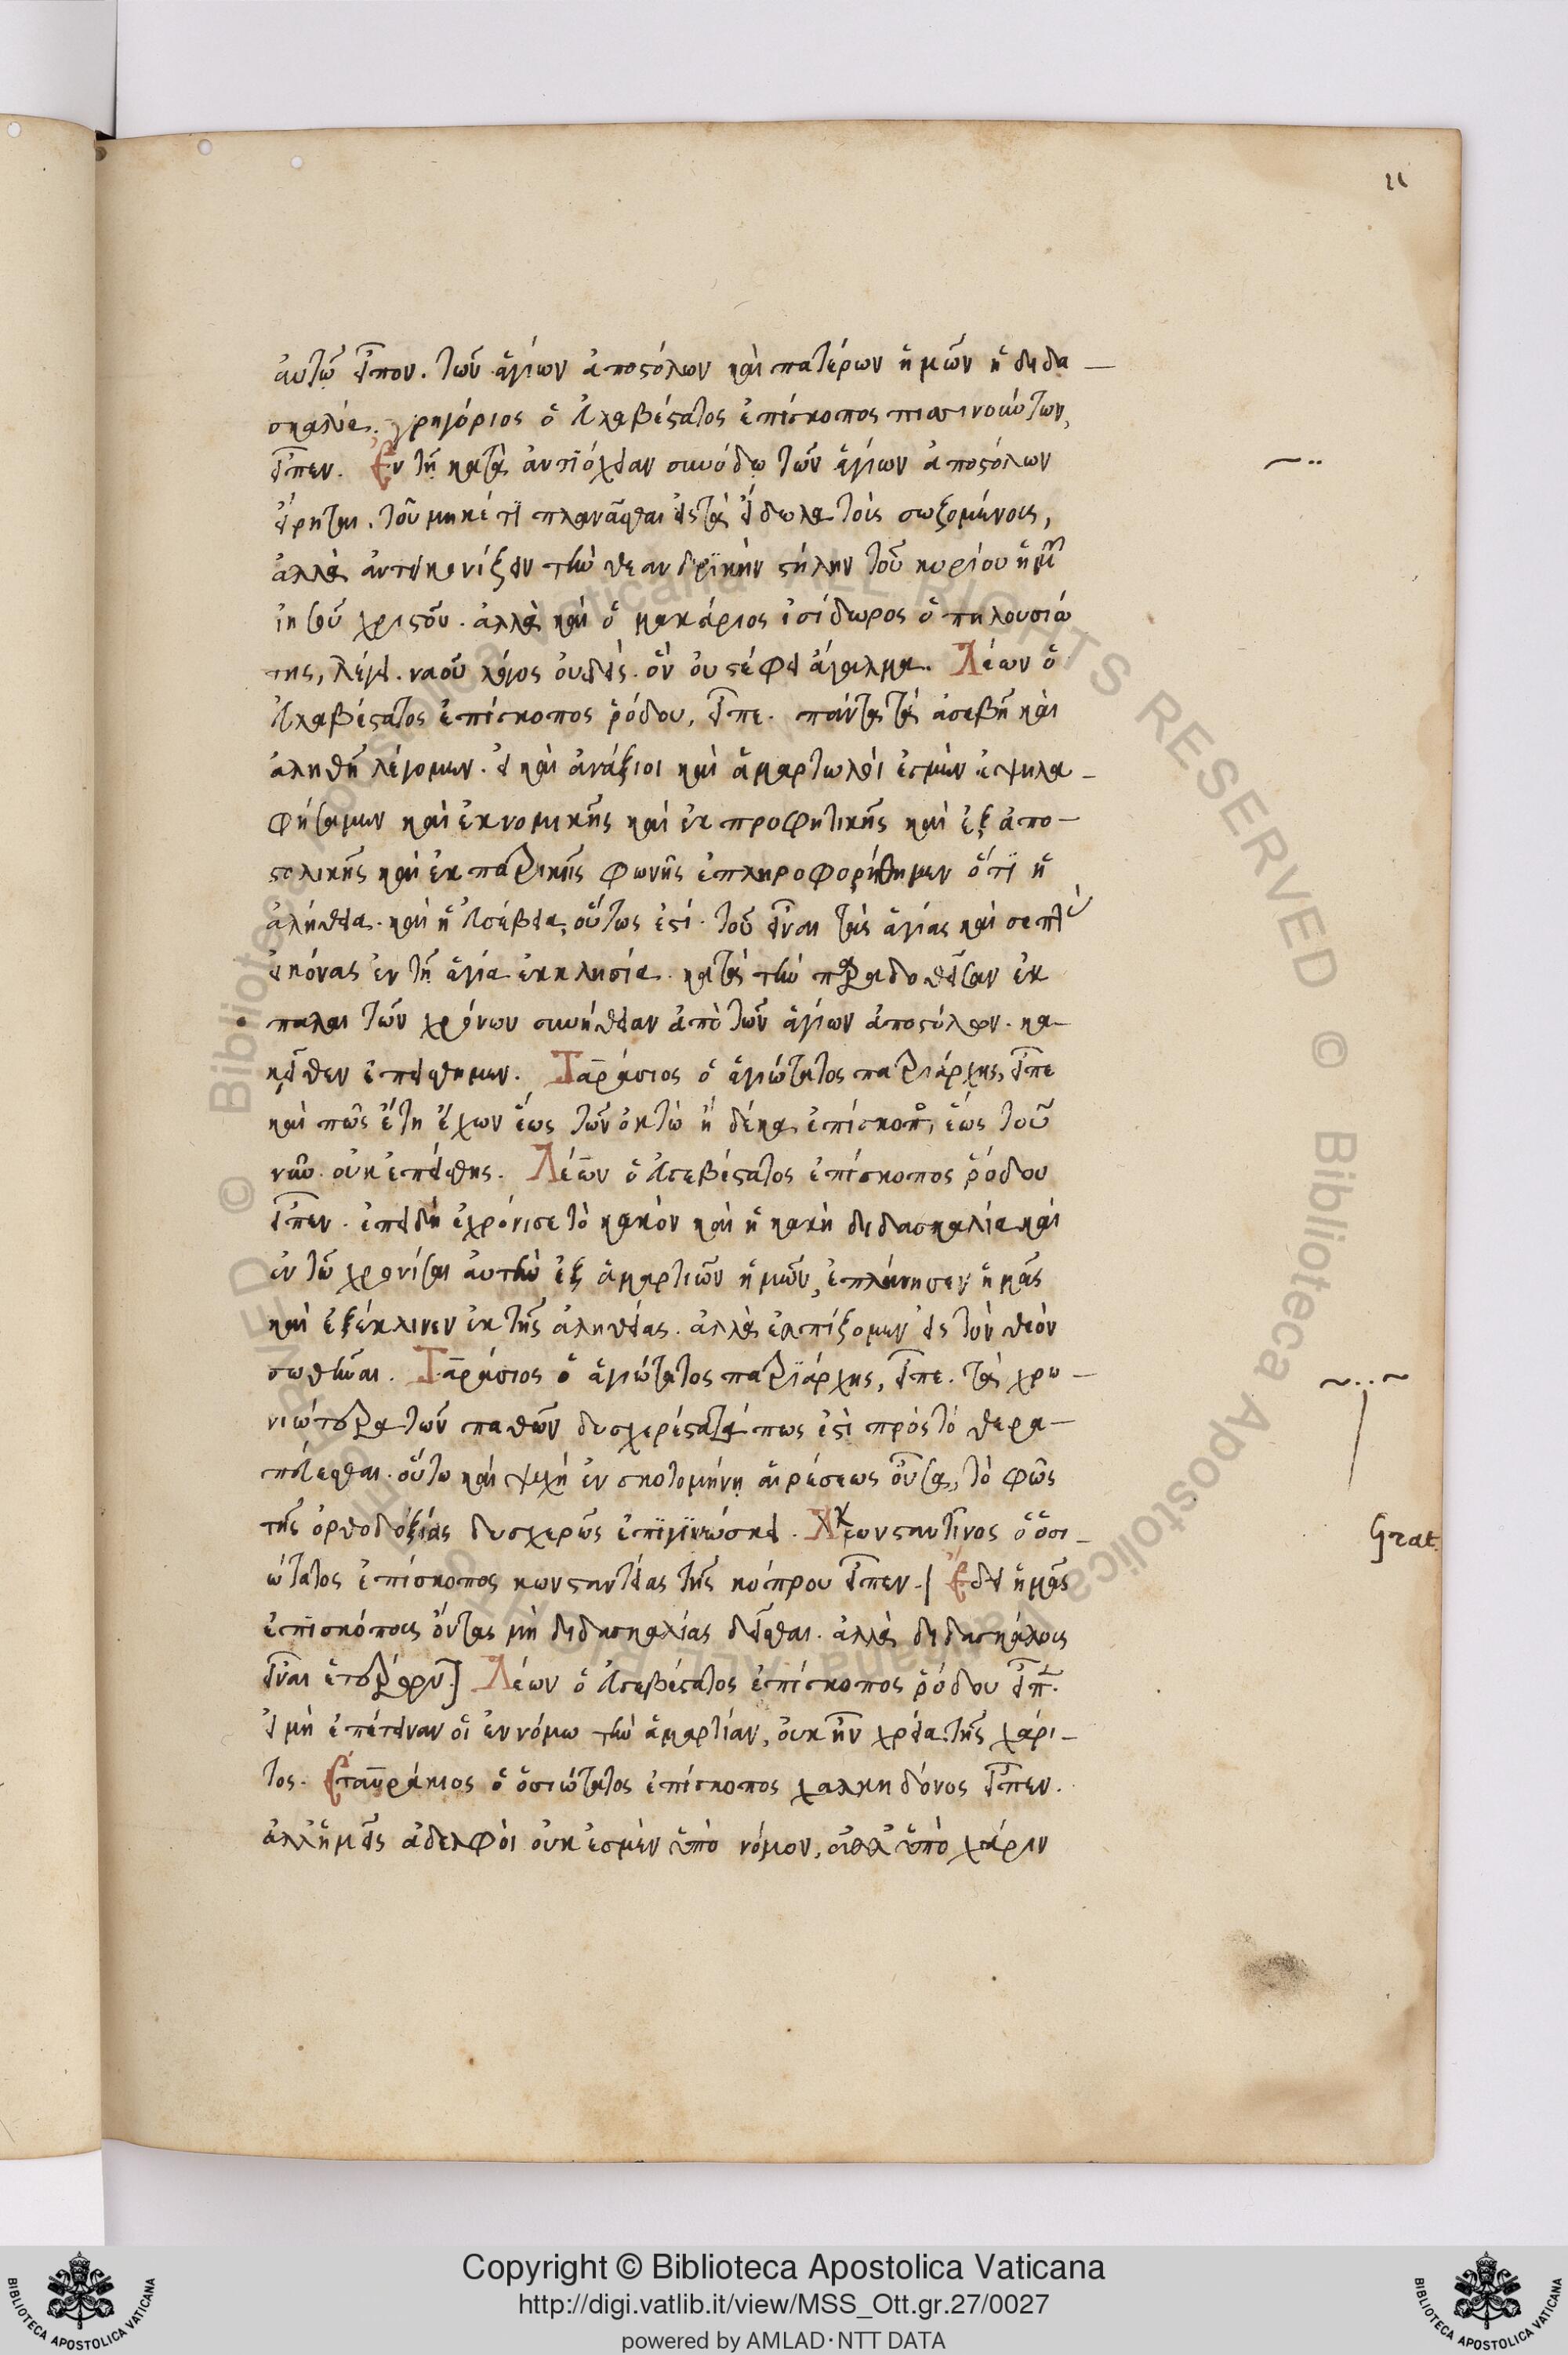 11
αὐτῶ εἶπον. τῶν ἁγίων ἀποστόλων καὶ πατέρων ἡμῶν ἡ διδα-
σκαλία. γρηγόριος ὁ εὐλαβέστατος ἐπίσκοπος πισινούντων,
εἶπεν. Ἐν τῇ κατὰ ἀντιόχειαν συνόδω τῶν ἁγίων ἀποστόλων
εἴρηται. τοῦ μηκέτι πλανᾶσθαι εἰς τὰ εἴδωλα τοὺς σωζομένους,
ἀλλὰ ἀντεικονίζειν τὴν θεανδρικὴν στήλην τοῦ κυρίου ἡμῶν
ἰησοῦ χριστοῦ. ἀλλὰ καὶ ὁ μακάριος ἰσίδωρος ὁ πηλουσιώ
της, λέγει. ναοῦ λόγος οὐδεὶς. ὃν οὐ στέφει ἄγαλμα. Λέων ὁ
εὐλαβέστατος ἐπίσκοπος ῥόδου, εἶπε. πάντα τὰ ἀσεβῆ καὶ
ἀληθῆ λέγομεν. εἰ καὶ ἀνάξιοι καὶ ἁμαρτωλοὶ ἐσμὲν ἐψηλα-
φήσαμεν καὶ ἐκ νομικῆς καὶ ἐκ προφητικῆς καὶ ἐξ ἀπο-
στολικῆς καὶ ἐκ πατρικῆς φωνῆς ἐπληροφορήθημεν ὅτι ἡ
ἀλήθεια. καὶ ἡ εὐσέβεια, οὕτως ἐστί. τοῦ εἶναι τὰς ἁγίας καὶ σεπτὰς
εἰκόνας ἐν τῇ ἁγία ἐκκλησία. κατὰ τὴν παραδοθεῖσαν ἐκ
παλαι τῶν χρόνων συνήθειαν ἀπὸ τῶν ἁγίων ἀποστόλων. κα-
κεῖθεν ἐπείσθημεν. Ταράσιος ὁ ἁγιώτατος πατριάρχης, εἶπε
καὶ πῶς ἔτη ἔχων ἕως τῶν ὀκτὼ ἢ δέκα ἐπίσκοπος, ἕως τοῦ
νῦν οὐκ ἐπείσθης. Λέων ὁ εὐσεβέστατος ἐπίσκοπος ῥόδου
εἶπεν. ἐπειδὴ ἐχρόνισε τὸ κακὸν καὶ ἡ κακὴ διδασκαλία καὶ
ἐν τῶ χρονίσαι αὐτὴν ἐξ ἁμαρτιῶν ἡμῶν, ἐπλάνησεν ἡμᾶς
καὶ ἐξέκλινεν ἐκ τῆς ἀληθείας. ἀλλὰ ἐλπίζομεν εἰς τὸν θεὸν
σωθῆναι. Ταράσιος ὁ ἁγιώτατος πατριάρχης, εἶπε. τὰ χρο-
νιώτερα τῶν παθῶν δυσχερέστατά πως ἐστὶ πρὸς τὸ θερα-
πεύεσθαι. οὕτω καὶ ψυχὴ ἐν σκοτομήνη αἱρέσεως οὖσα, τὸ φῶς
τῆς ὀρθοδοξίας δυσχερῶς ἐπιγινώσκει. κωνσταντῖνος ὁ ὁσι-
ώτατος ἐπίσκοπος κωνσταντείας τῆς κύπρου εἶπεν. Ἔδει ἡμᾶς
ἐπισκόπους ὄντας μὴ διδασκαλίας δεῖσθαι. ἀλλὰ διδασκάλους
εἶναι ἑτέρων.] Λέων ὁ εὐσεβέστατος ἐπίσκοπος ῥόδου εἶπεν.
εἰ μὴ ἐπέτειναν οἱ ἐν νόμω τὴν ἁμαρτίαν, οὐκ ἦν χρεία τῆς χάρι-
τος. Σταυράκιος ὁ ὁσιώτατος ἐπίσκοπος χαλκηδόνος εἶπεν.
ἀλλ' ἡμεῖς ἀδελφοὶ οὐκ ἐσμὲν ὑπὸ νόμον, ἀλλ' ὑπὸ χάριν
Grat.
Copyright © Biblioteca Apostolica Vaticana
http://digi.vatlib.it/view/MSS_Ott.gr.27/0027
powered by AMLAD·NTT DATA
BIBLIOTECA APOSTOLICA VATICANA
BIBLIOTECA APOSTOLICA VATICANA